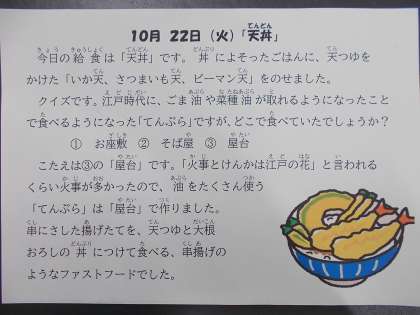 10月 22日（火）「天丼」
今日の給食は「天丼」です。丼によそったごはんに、天つゆを
かけた「いか天、さつまいも天、ピーマン天」をのせました。
クイズです。江戸時代に、ごま油や菜種油が取れるようになったこと
で食べるようになった「てんぷら」ですが、どこで食べていたでしょうか？
① お座敷 ② そば屋 ③ 屋台
こたえは③の「屋台」です。「火事とけんかは江戸の花」と言われる
くらい火事が多かったので、油をたくさん使う
「てんぷら」は「屋台」で作りました。
串にさした揚げたてを、天つゆと大根
おろしの丼につけて食べる、串揚げの
ようなファストフードでした。